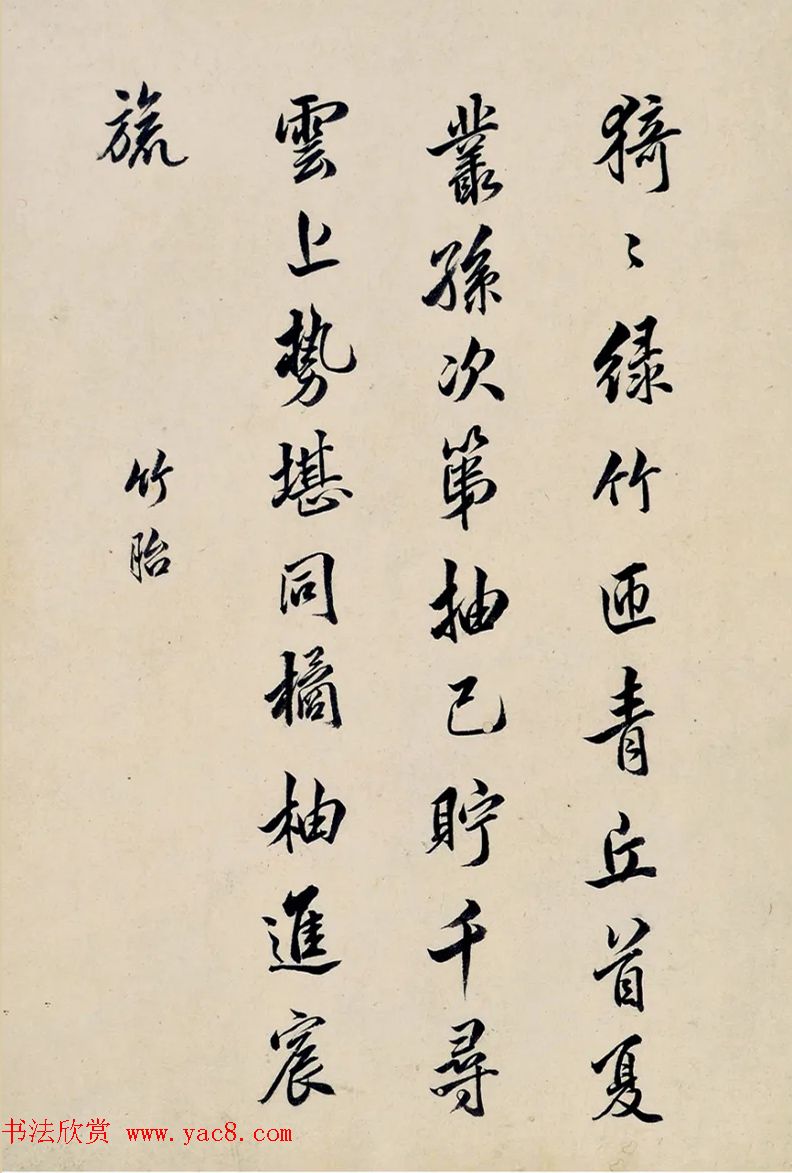 猗〻绿竹匝青丘首夏
叢孫次第抽已貯千尋
雲上勢堪同橘柚進宸
旒
竹胎
书法欣赏 www.yac8.com